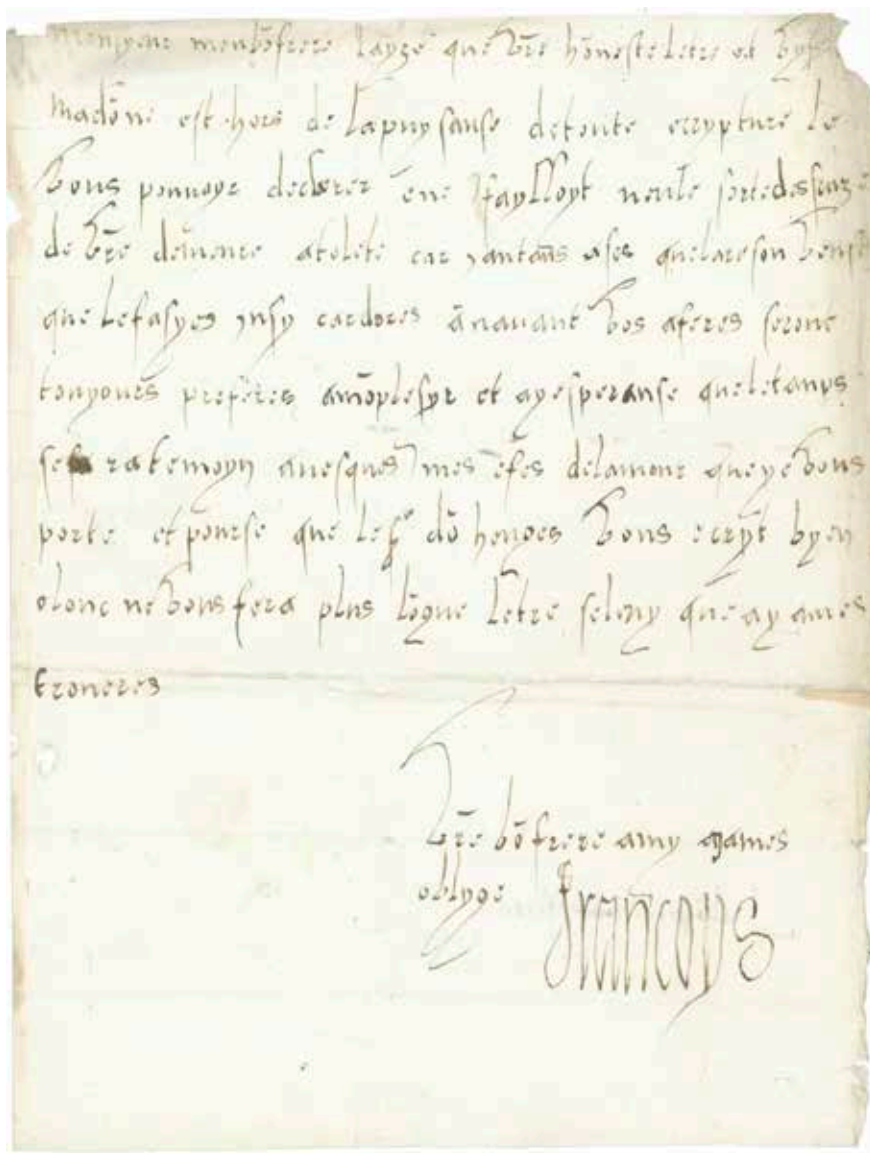 monsyeur monbõfrere layze que vr̃e hõneste letre et
madõne est hors de lapuysanse detoute ecrypture le
vous pouuoyr declerer ene faylloyt neulle sorte
de vr̃e demeure atolete car yantans ases quelareson
que lefasyes ynsy cardores anavant vos aferes seront
touyours preferes amõplesyr et ayesperanse queletanps
sera temoyn avesques mes efes delamour queye vous
porte et pourse que le dõ hevges vous ecryt byen
olonc ne vous fera plus lõgue letre seluy que ay ames
troneres
vr̃e bõ frere amy games
oblyge francoys